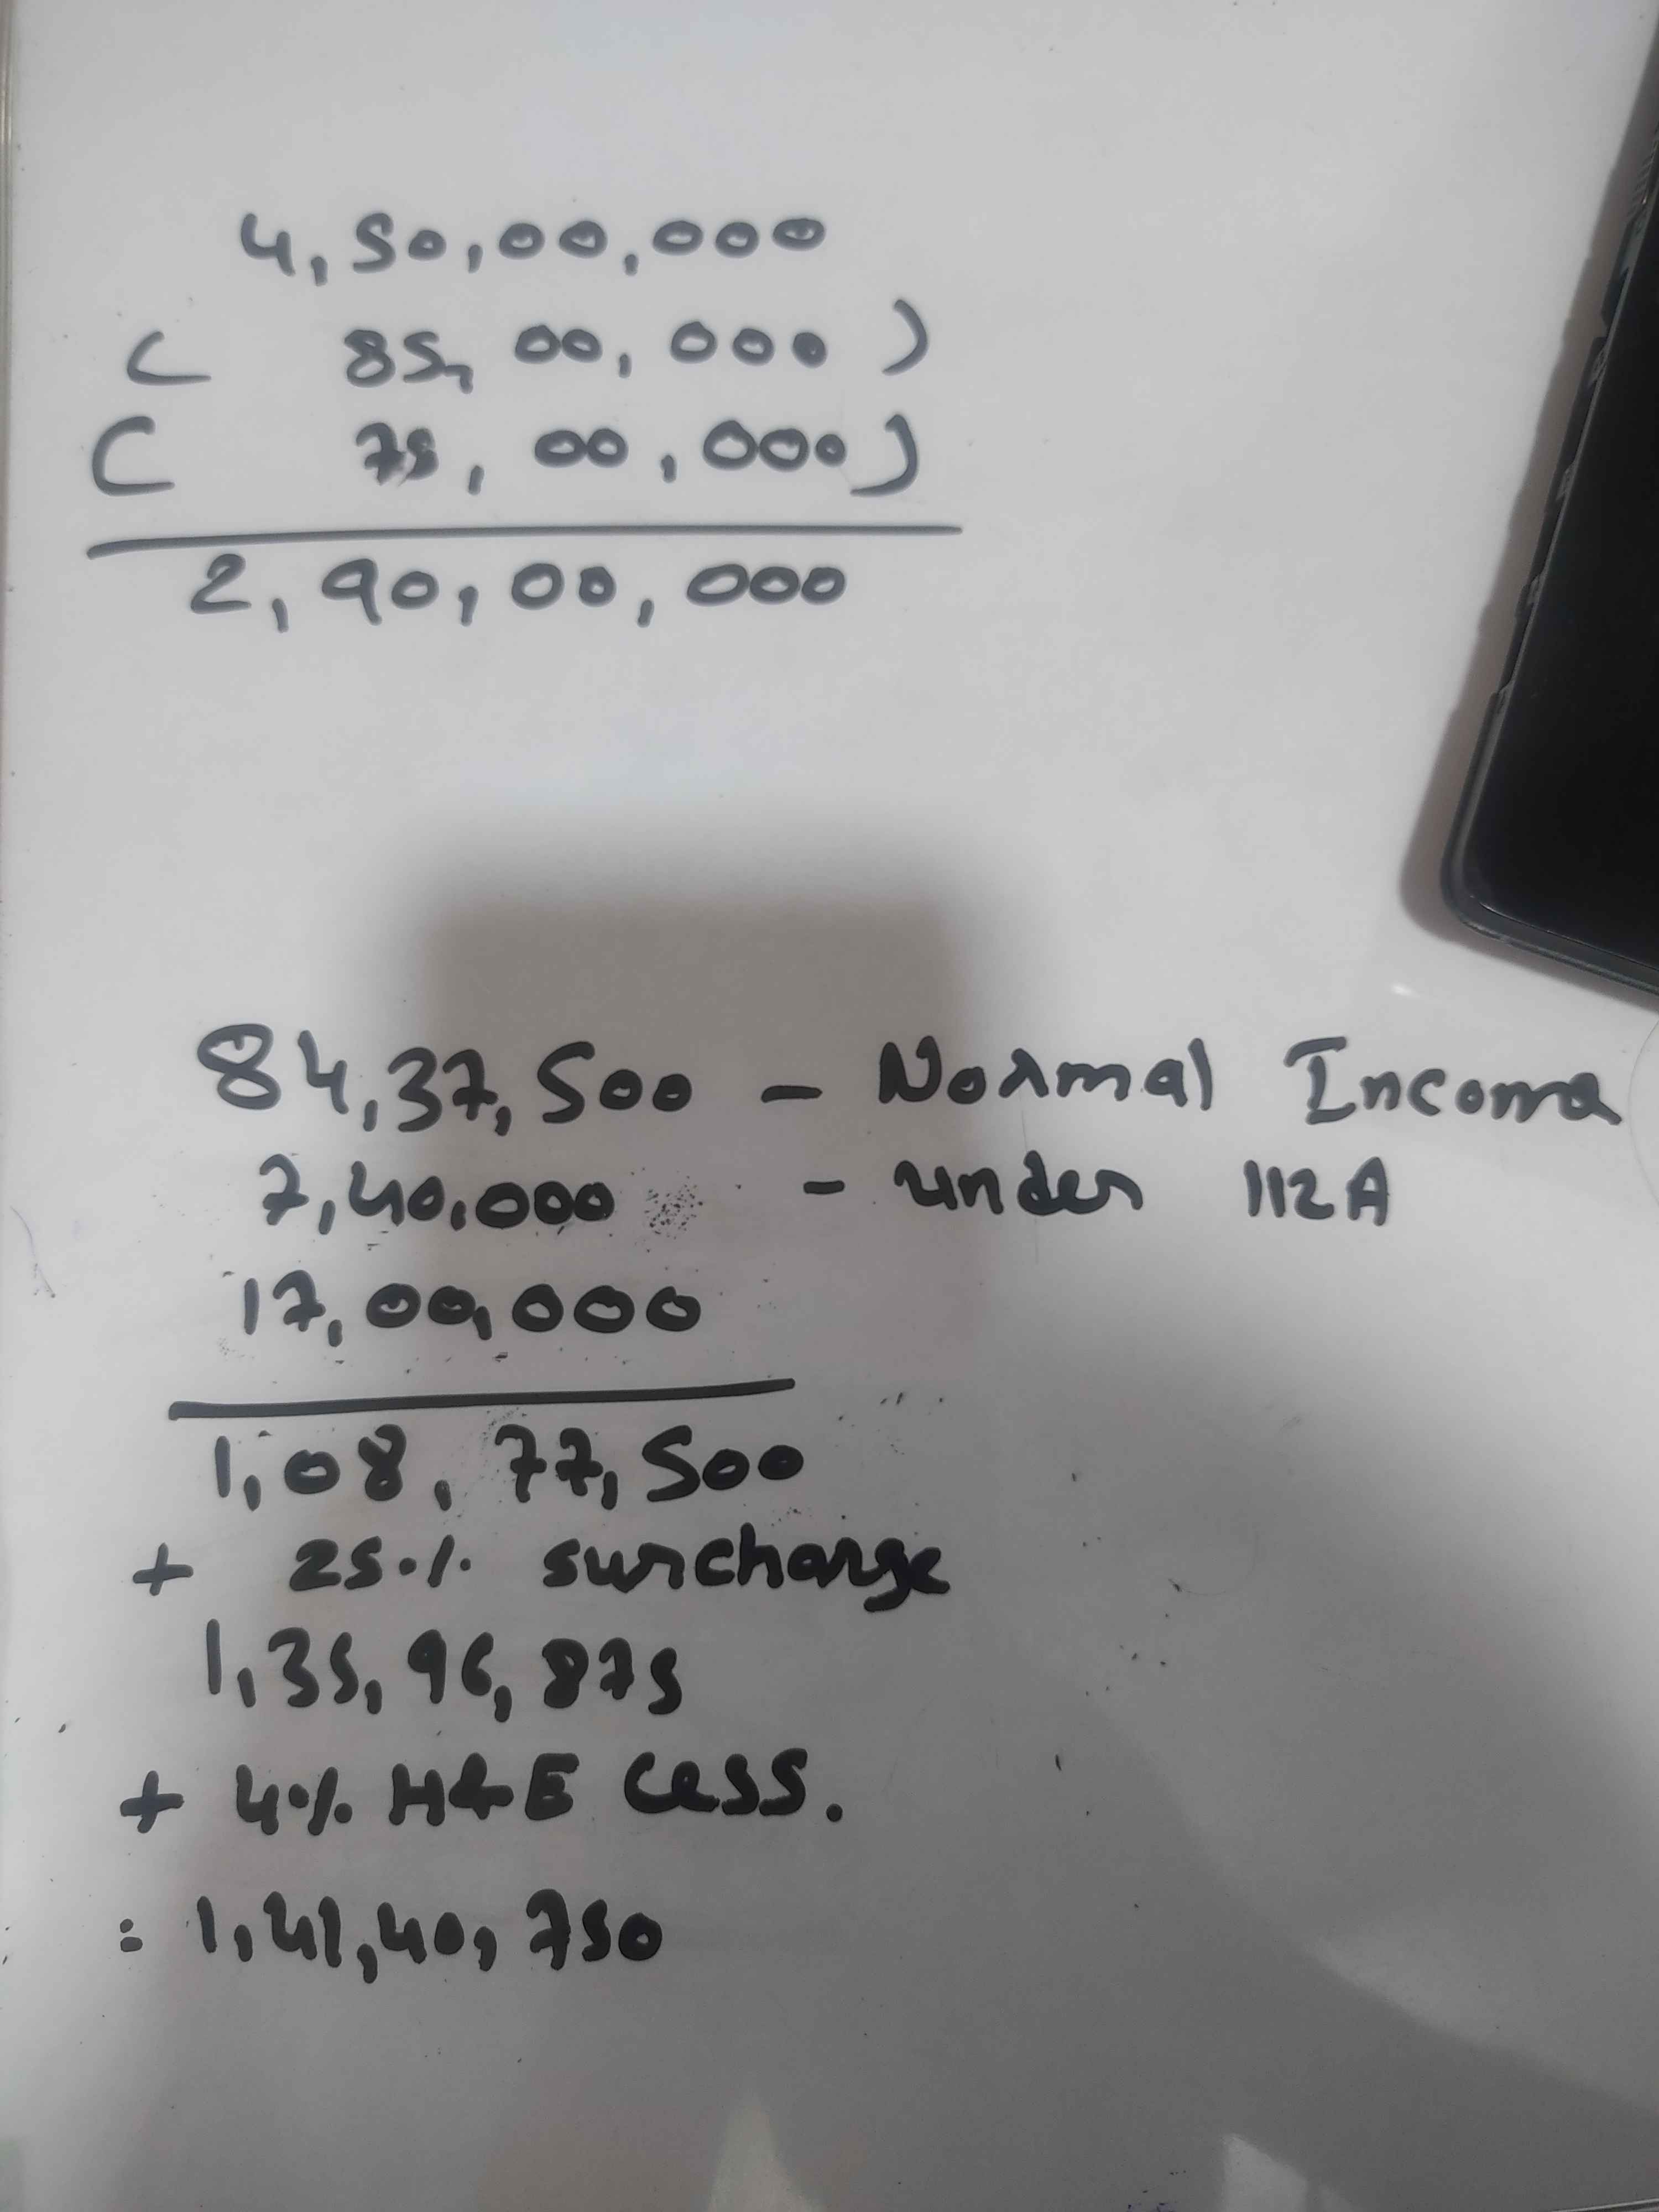 4,50,00,000
( 85,00,000 )
( 75,00,000)
2,90,00,000
84,37,500 - Normal Income
7,40,000 - under 112A
17,00,000
1,08,77,500
+ 25% surcharge
1,35,96,875
+ 4% H&E Cess.
: 1,41,40,750